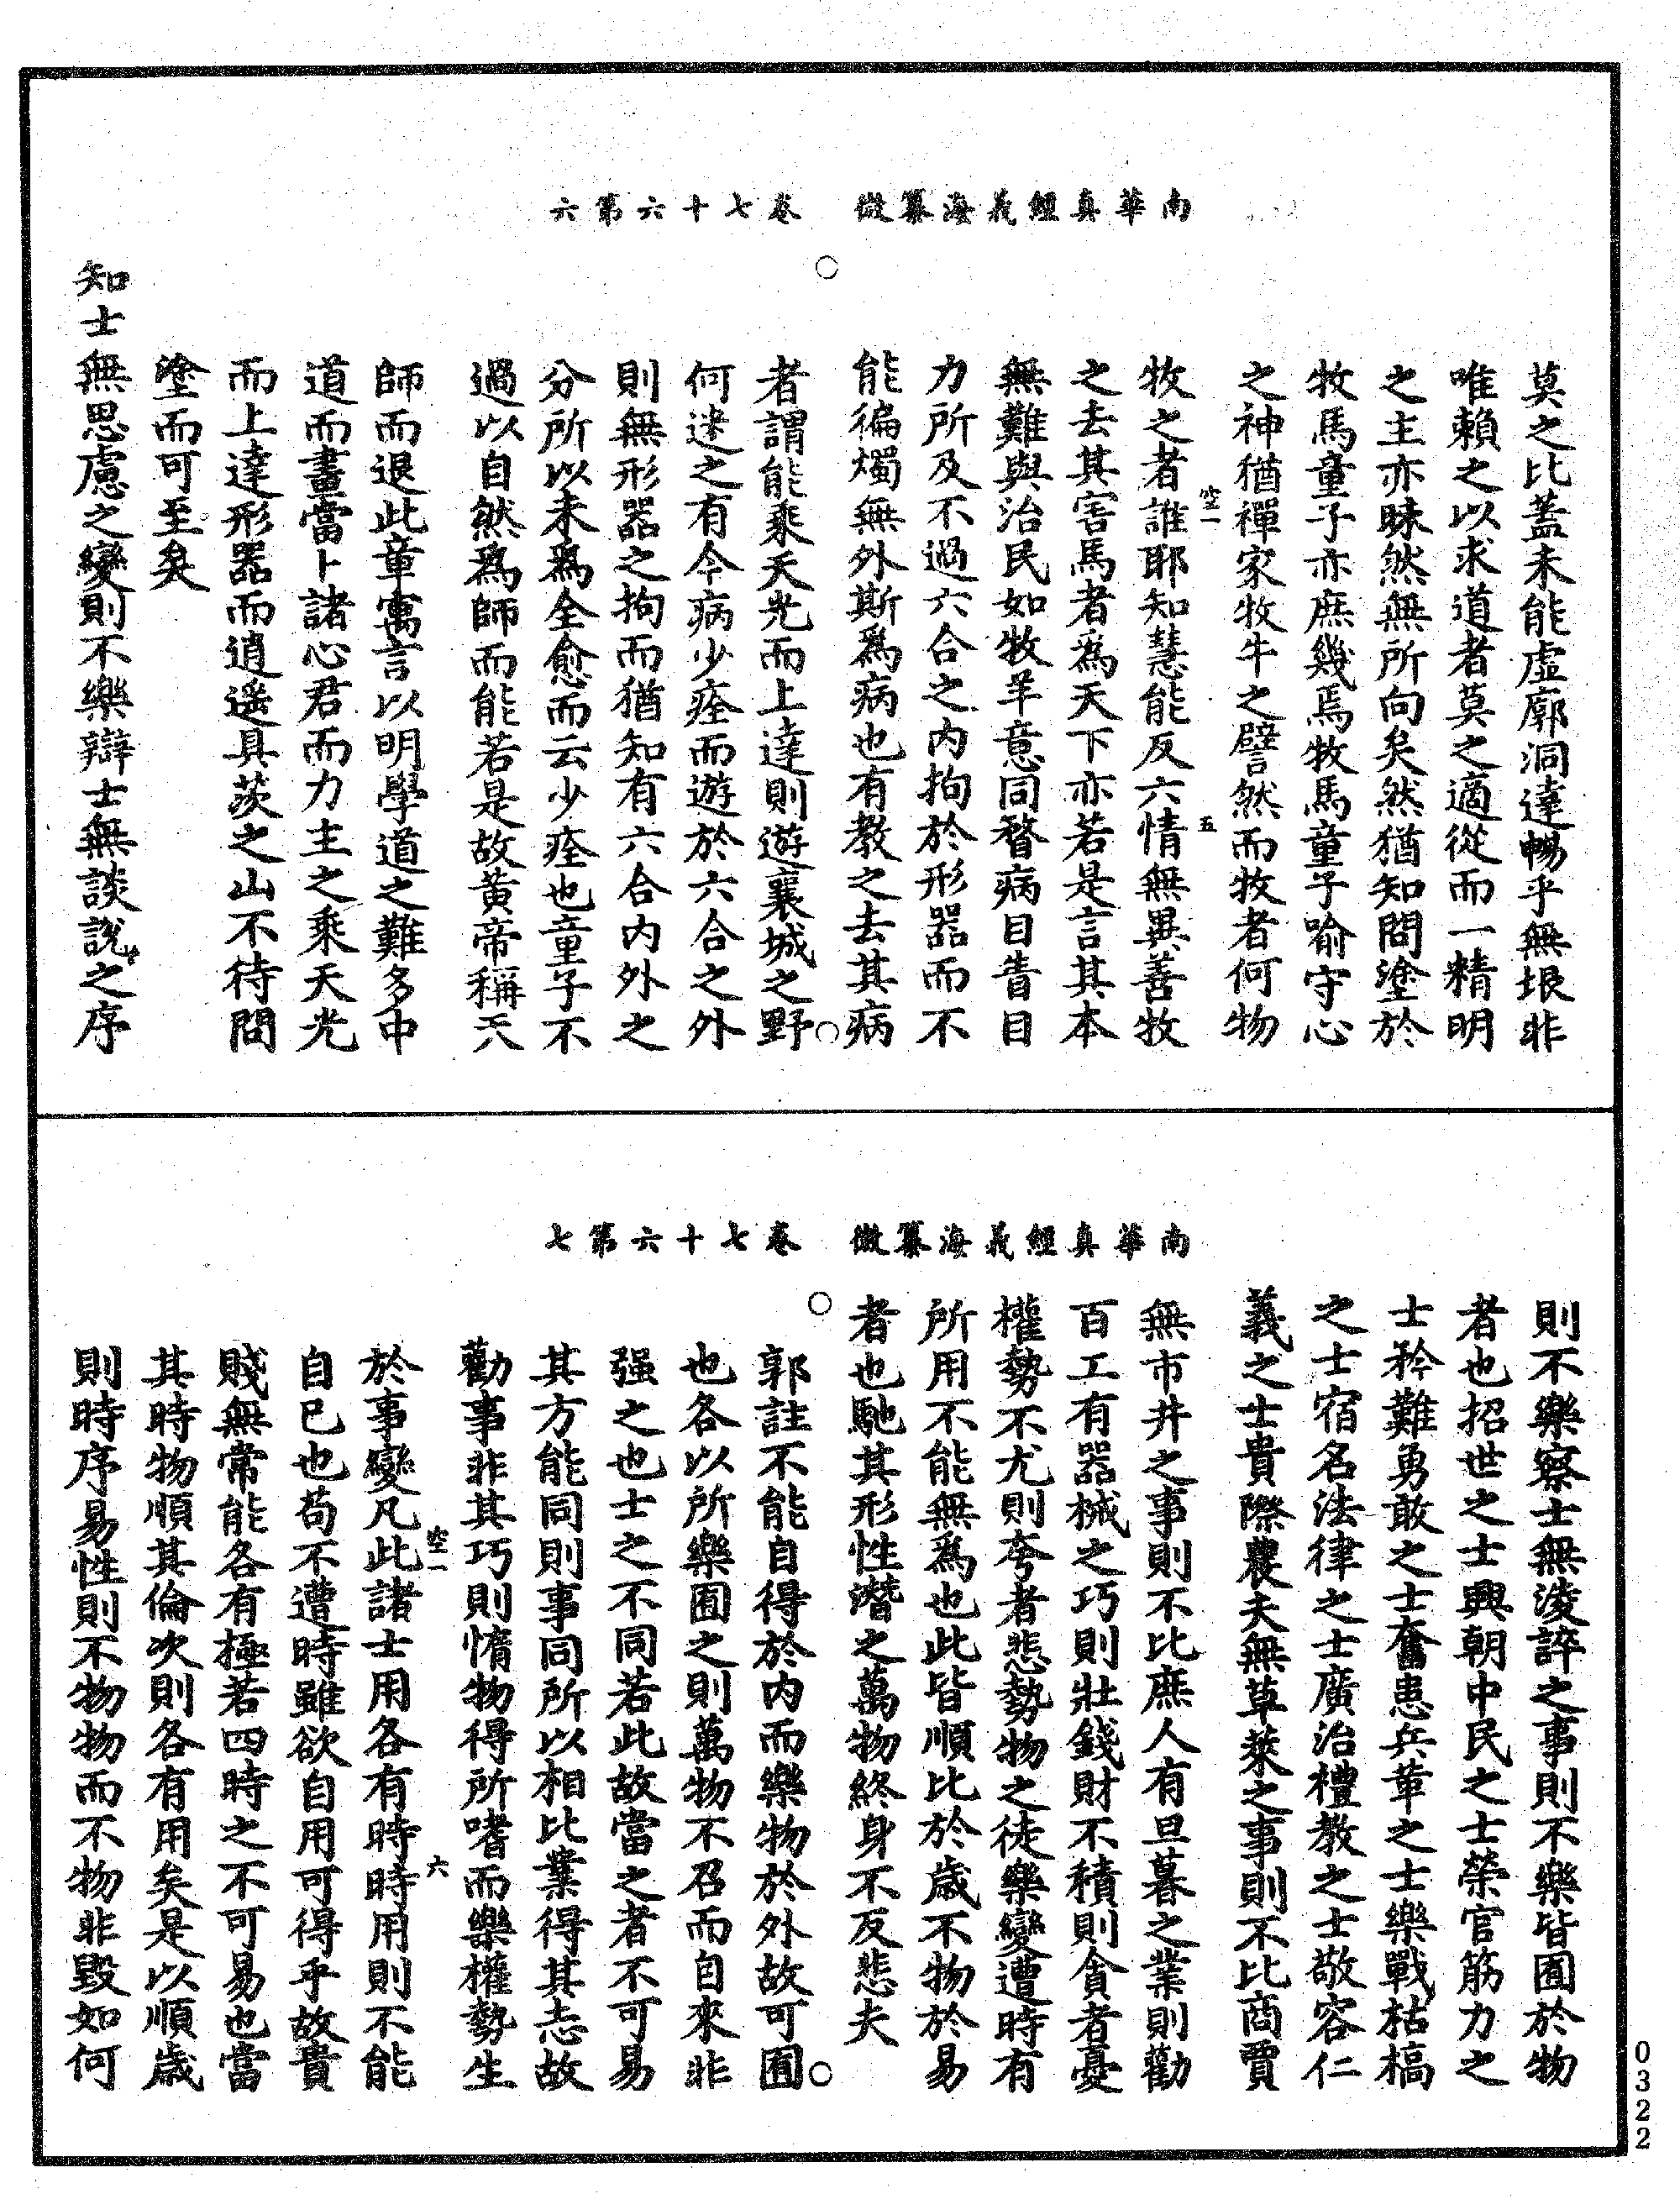 南華真經義海纂微　卷七十六第六
莫之比蓋未能虛廓洞達暢乎無垠非
唯賴之以求道者莫之適從而一精明
之主亦昧然無所向矣然猶知問塗於
牧馬童子亦庶幾焉牧馬童子喻守心
之神猶禪家牧牛之譬然而牧者何物
牧之者誰耶知慧能反六情無異善牧
空一
五
之去其害馬者為天下亦若是言其本
無難與治民如牧羊意同瞀病目眚目
力所及不過六合之內拘於形器而不
能徧燭無外斯為病也有教之去其病
者謂能乘天光而上達則遊襄城之野
何迷之有今病少痊而遊於六合之外
則無形器之拘而猶知有六合內外之
分所以未為全愈而云少痊也童子不
過以自然為師而能若是故黃帝稱天
師而退此章寓言以明學道之難多中
道而畫當卜諸心君而力主之乘天光
而上達形器而逍遙具茨之山不待問
塗而可至矣
知士無思慮之變則不樂辯士無談說之序
南華真經義海纂微　卷七十六第七
則不樂察士無淩誶之事則不樂皆囿於物
者也招世之士興朝中民之士榮官筋力之
士矜難勇敢之士奮患兵革之士樂戰枯槁
之士宿名法律之士廣治禮教之士敬容仁
義之士貴際農夫無草萊之事則不比商賈
無市井之事則不比庶人有旦暮之業則勸
百工有器械之巧則壯錢財不積則貪者憂
權勢不尤則夸者悲勢物之徒樂變遭時有
所用不能無為也此皆順比於歲不物於易
者也馳其形性潛之萬物終身不反悲夫
郭註不能自得於內而樂物於外故可囿
也各以所樂囿之則萬物不召而自來非
强之也士之不同若此故當之者不可易
其方能同則事同所以相比業得其志故
勸事非其巧則惰物得所嗜而樂權勢生
於事變凡此諸士用各有時時用則不能
空一
六
自已也苟不遭時雖欲自用可得乎故貴
賤無常能各有極若四時之不可易也當
其時物順其倫次則各有用矣是以順歲
則時序易性則不物物而不物非毀如何
0322